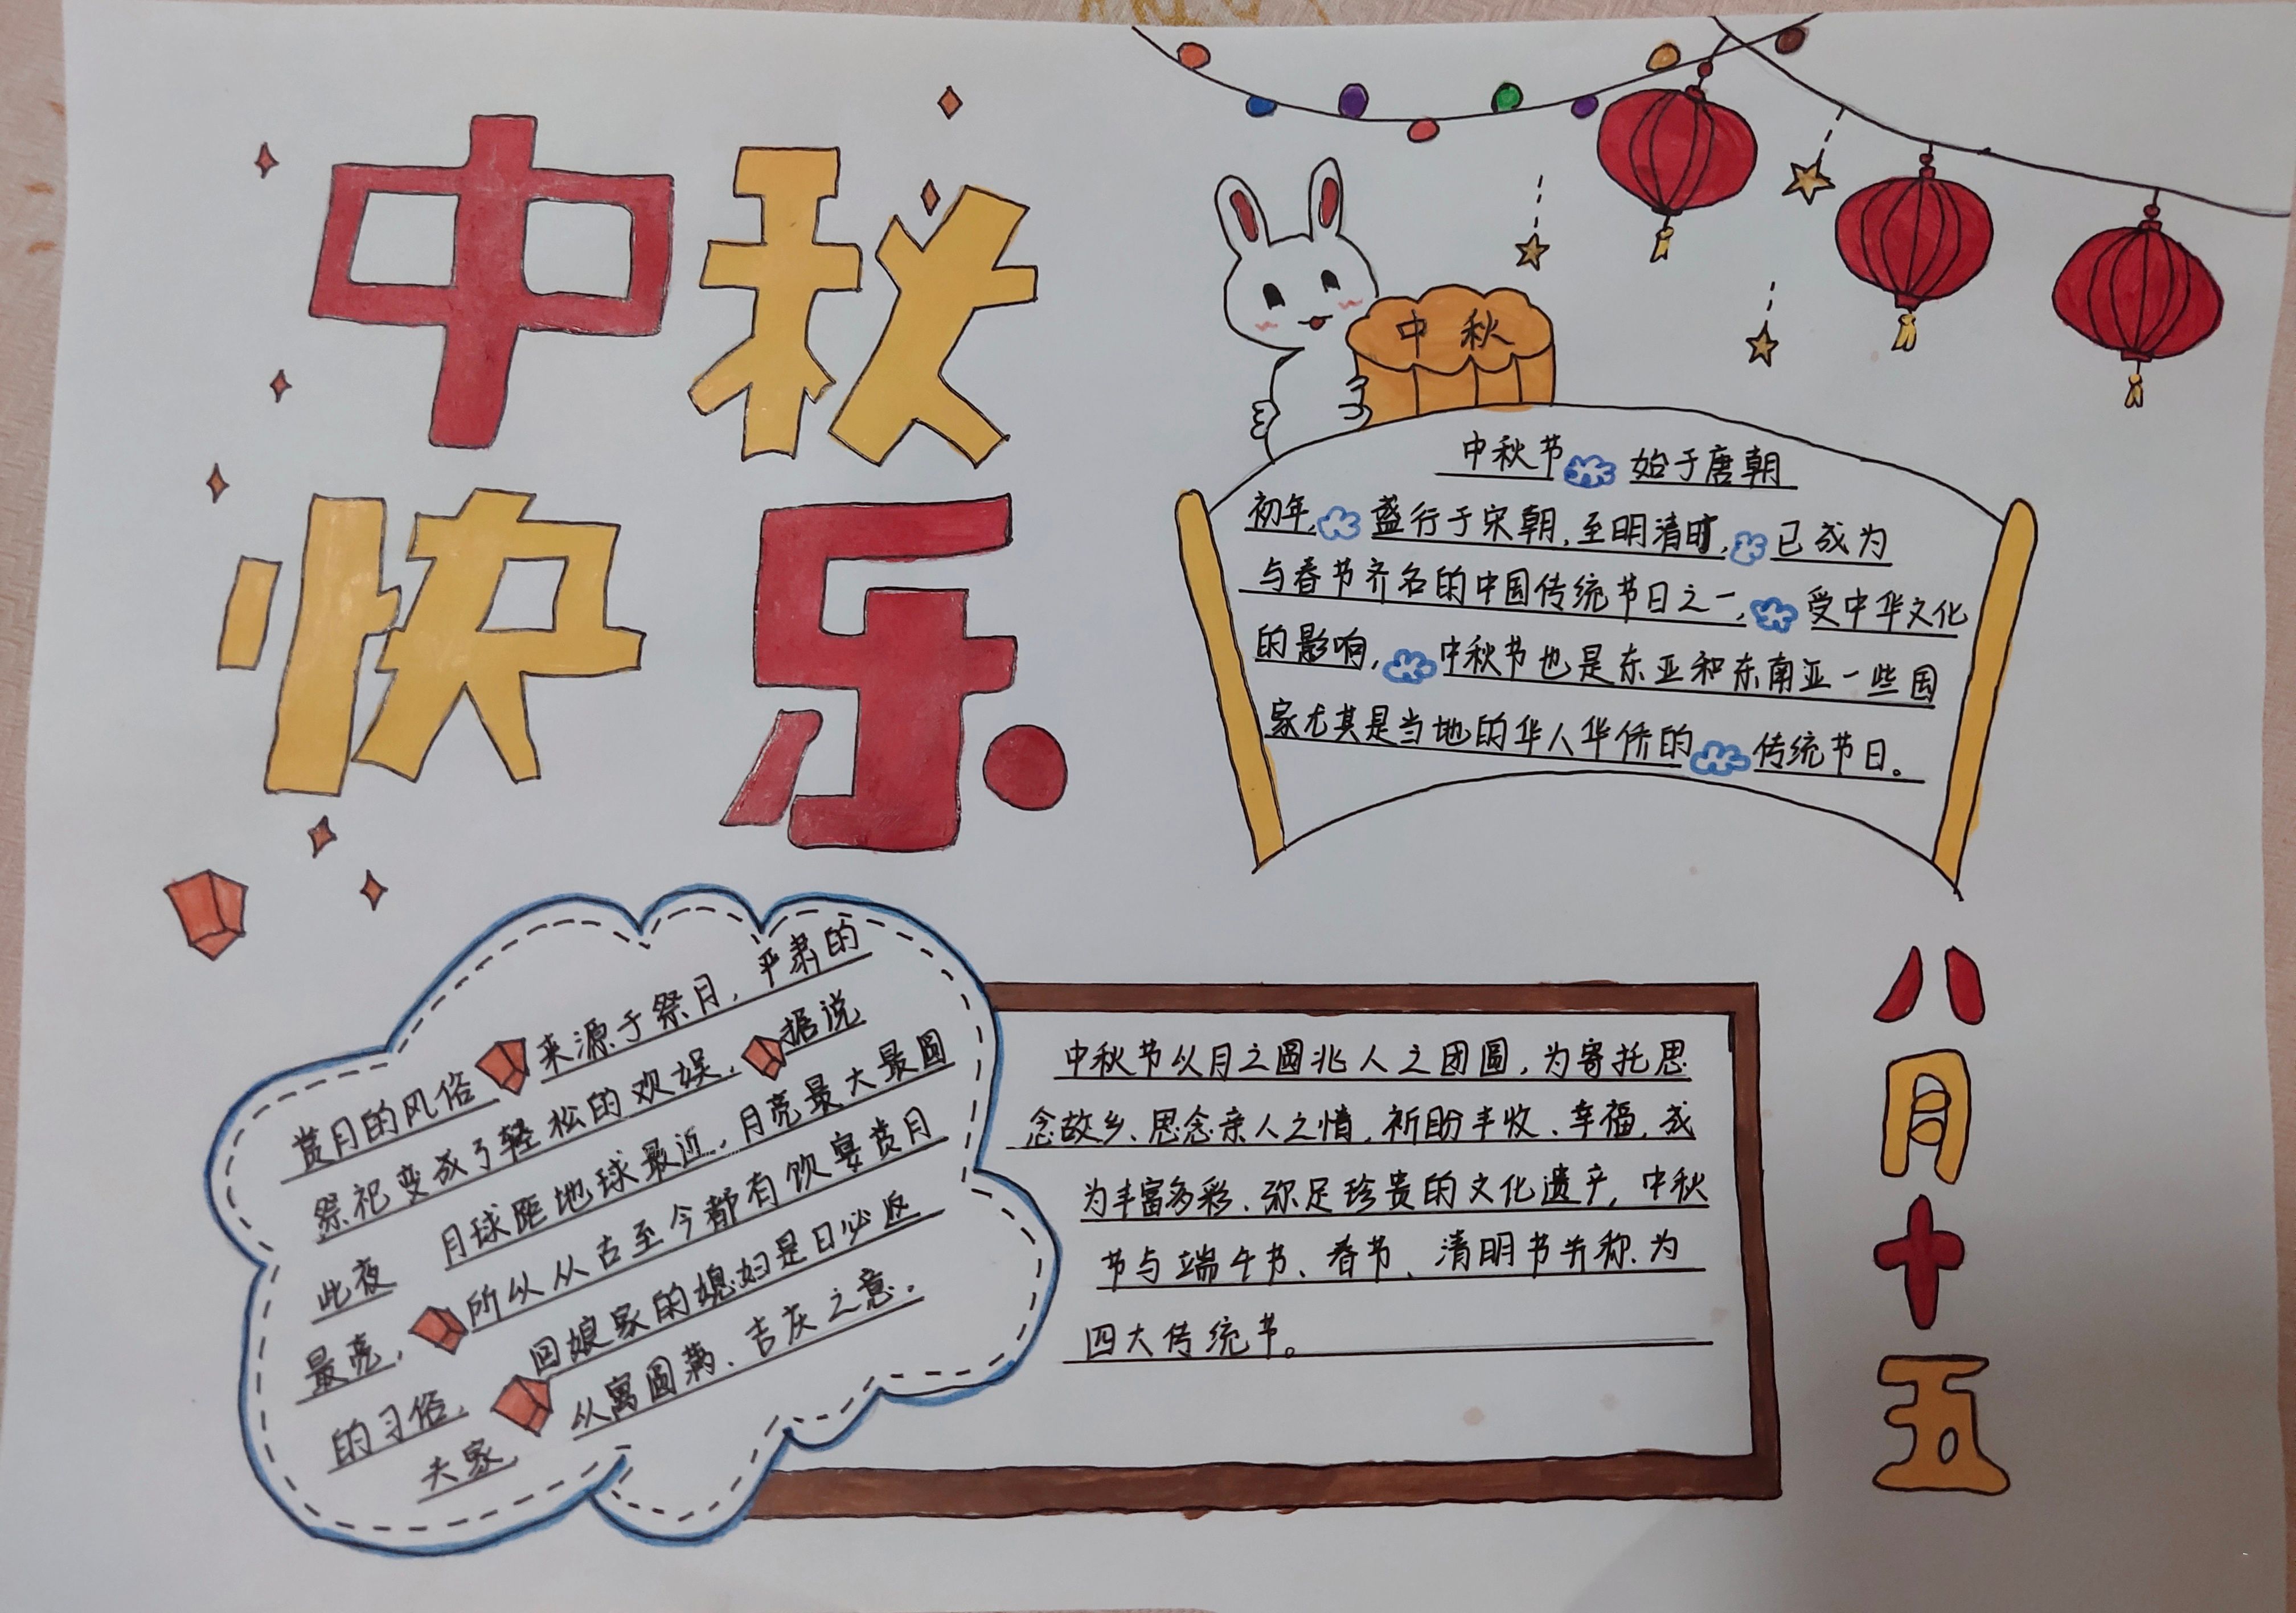 中秋
快乐
中秋
中秋节 始于唐朝
初年, 盛行于宋朝,至明清时, 已成为
与春节齐名的中国传统节日之一, 受中华文化
的影响, 中秋节也是东亚和东南亚一些国
家尤其是当地的华人华侨的 传统节日。
赏月的风俗 来源于祭月,严肃的
祭祀变成了轻松的欢娱. 据说
此夜 月球距地球最近,月亮最大最圆
最亮, 所以从古至今都有饮宴赏月
的习俗, 回娘家的媳妇是日必返
夫家, 以寓圆满、吉庆之意.
中秋节以月之圆兆人之团圆,为寄托思
念故乡、思念亲人之情,祈盼丰收、幸福,成
为丰富多彩、弥足珍贵的文化遗产,中秋
节与端午节、春节、清明节并称为
四大传统节。
八月十五